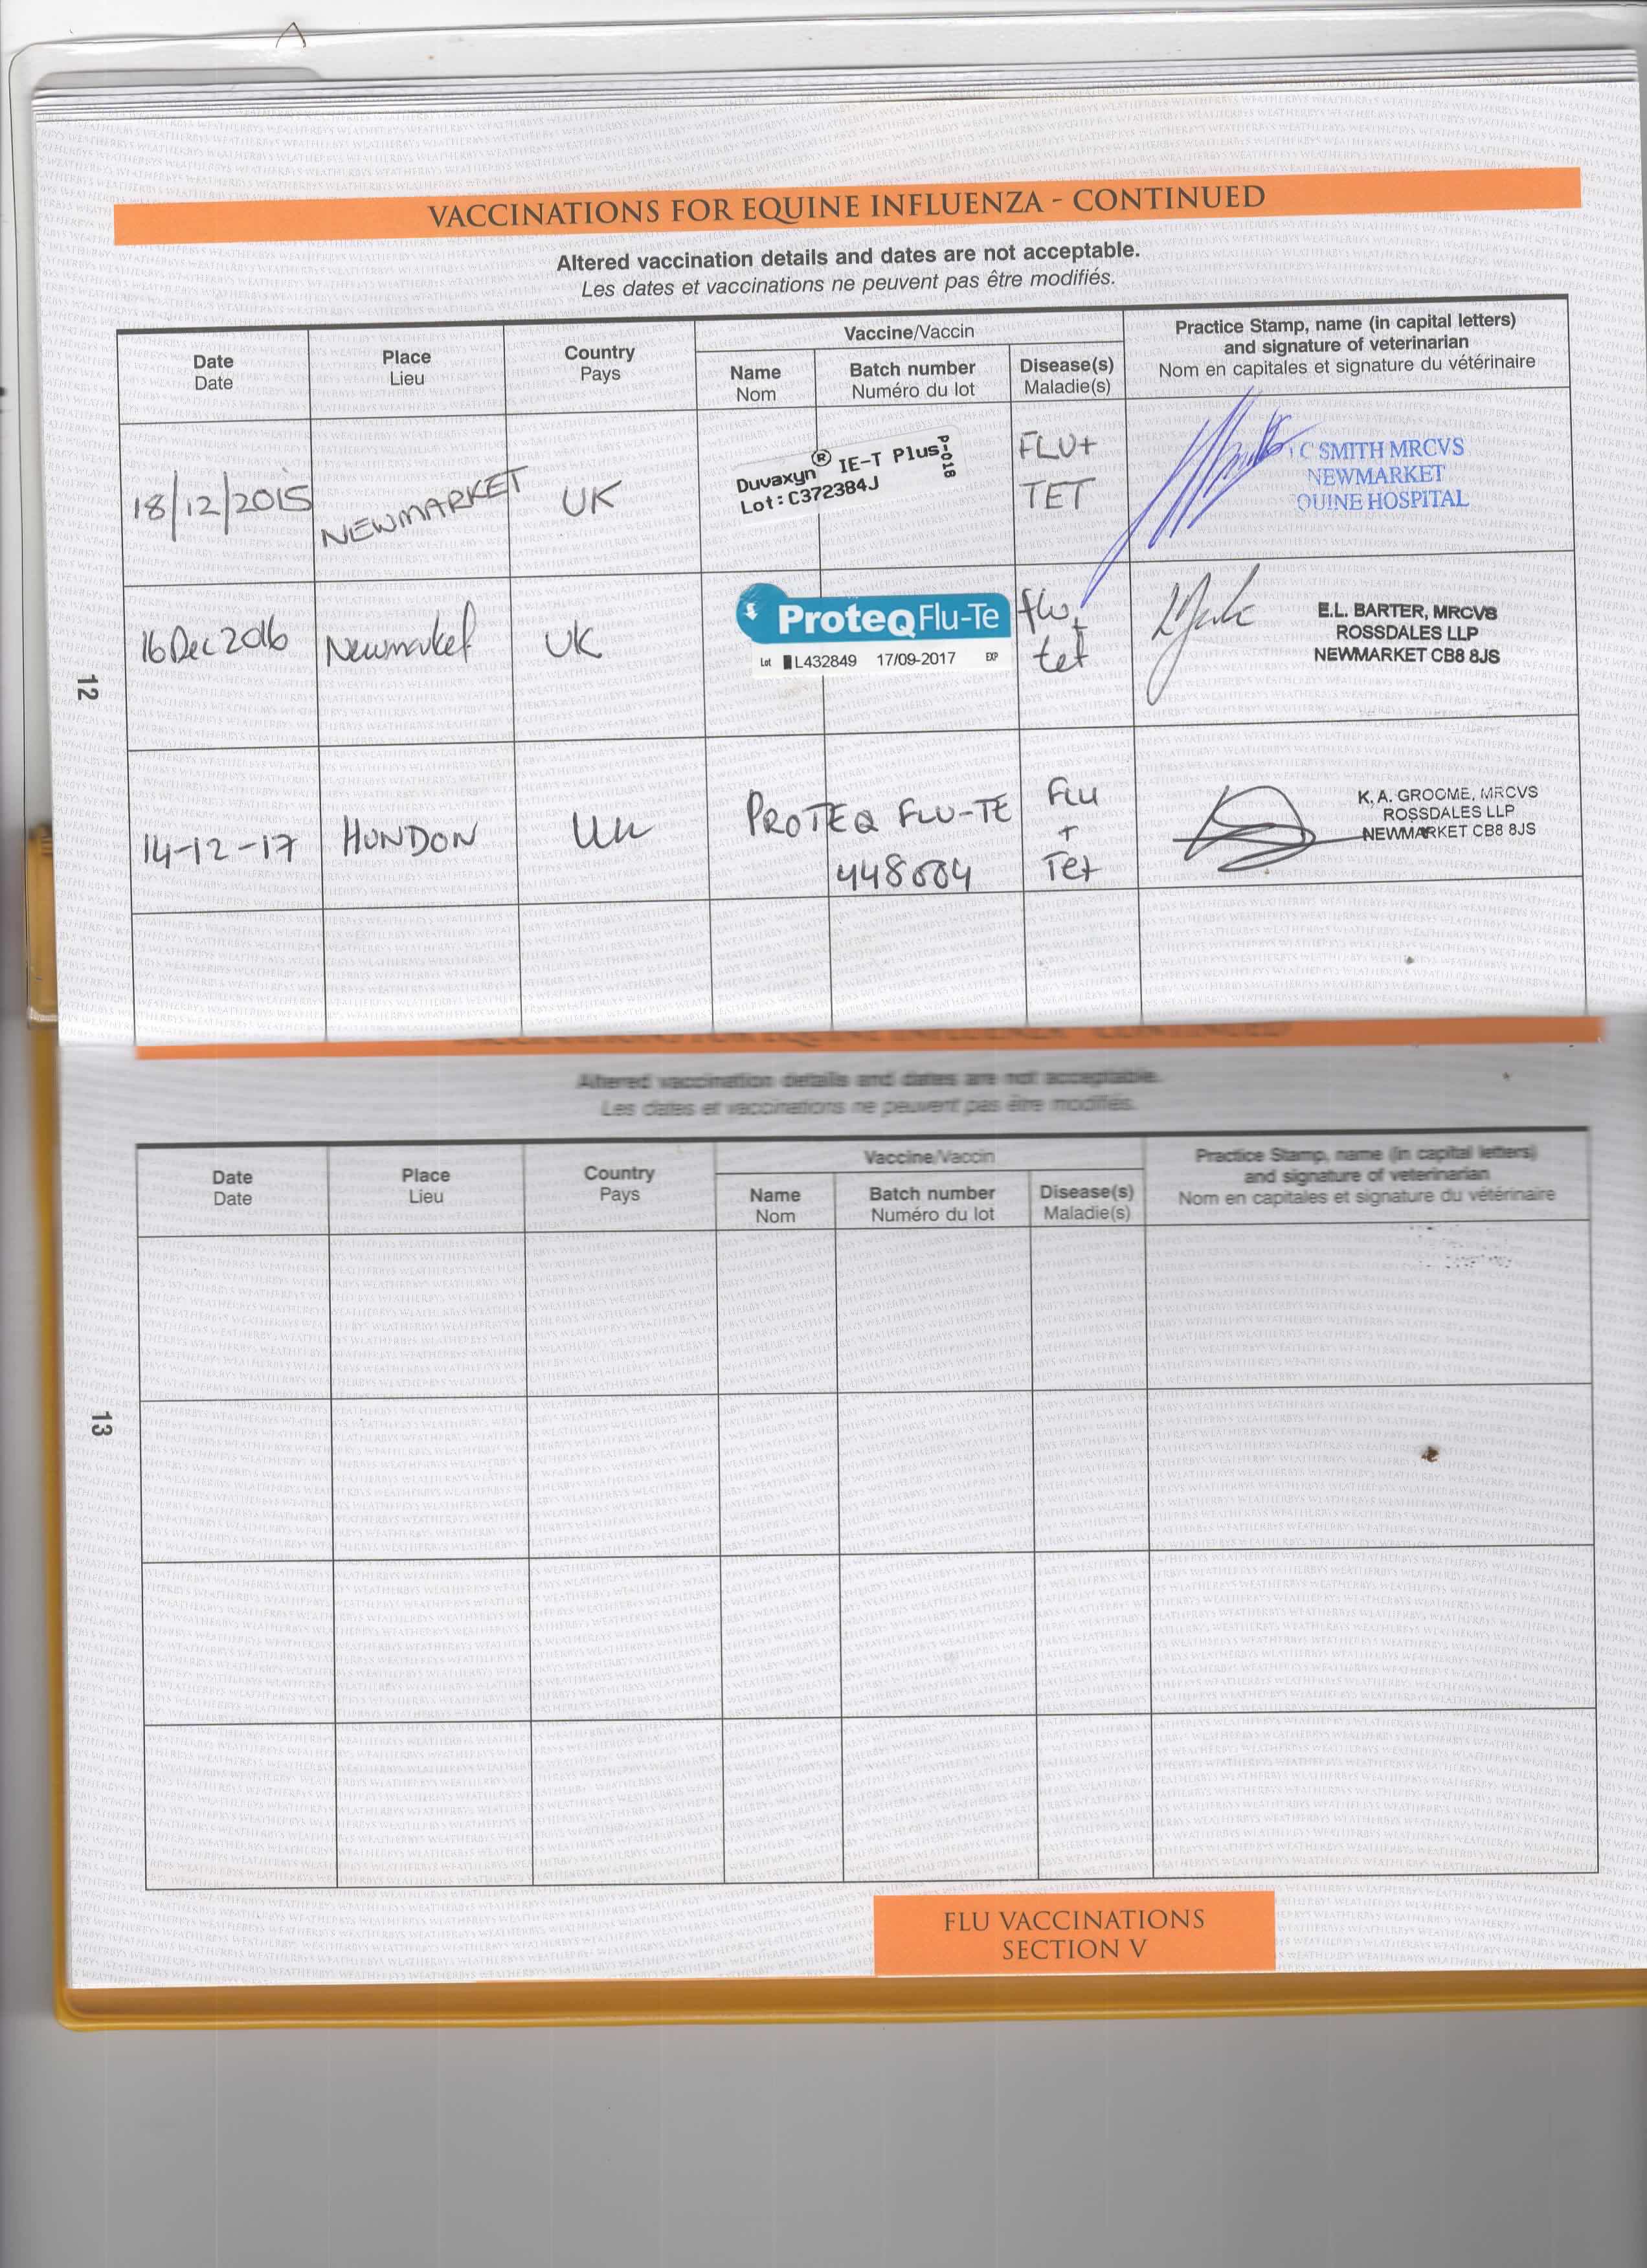 VACCINATIONS FOR EQUINE INFLUENZA - CONTINUED
Altered vaccination details and dates are not acceptable.
Les dates et vaccinations ne peuvent pas être modifiés.
Date
Date
Place
Lieu
Country
Pays
Vaccine/Vaccin
Name
Nom
Batch number
Numéro du lot
Disease(s)
Maladie(s)
Practice Stamp, name (in capital letters)
and signature of veterinarian
Nom en capitales et signature du vétérinaire
18/12/2015
NEWMARKET
UK
Duvaxyn® IE-T Plus
Lot:C372384J
P-018
FLU+
TET
C SMITH MRCVS
NEWMARKET
QUINE HOSPITAL
16 Dec 2016
Newmarket
UK
ProteqFlu-Te
Lot L432849 17/09-2017 EXP
flu,
tet
E.L. BARTER, MRCVS
ROSSDALES LLP
NEWMARKET CB8 8JS
12
14-12-17
HUNDON
UK
PROTEQ FLU-TE
Flu
+
Tet
K.A. GROOME, MRCVS
ROSSDALES LLP
NEWMARKET CB8 8JS
Altered vaccination details and dates are not acceptable.
Les dates et vaccinations ne peuvent pas être modifiés.
Date
Date
Place
Lieu
Country
Pays
Vaccine/Vaccin
Name
Nom
Batch number
Numéro du lot
Disease(s)
Maladie(s)
Practice Stamp, name (in capital letters)
and signature of veterinarian
Nom en capitales et signature du vétérinaire
13
FLU VACCINATIONS
SECTION V